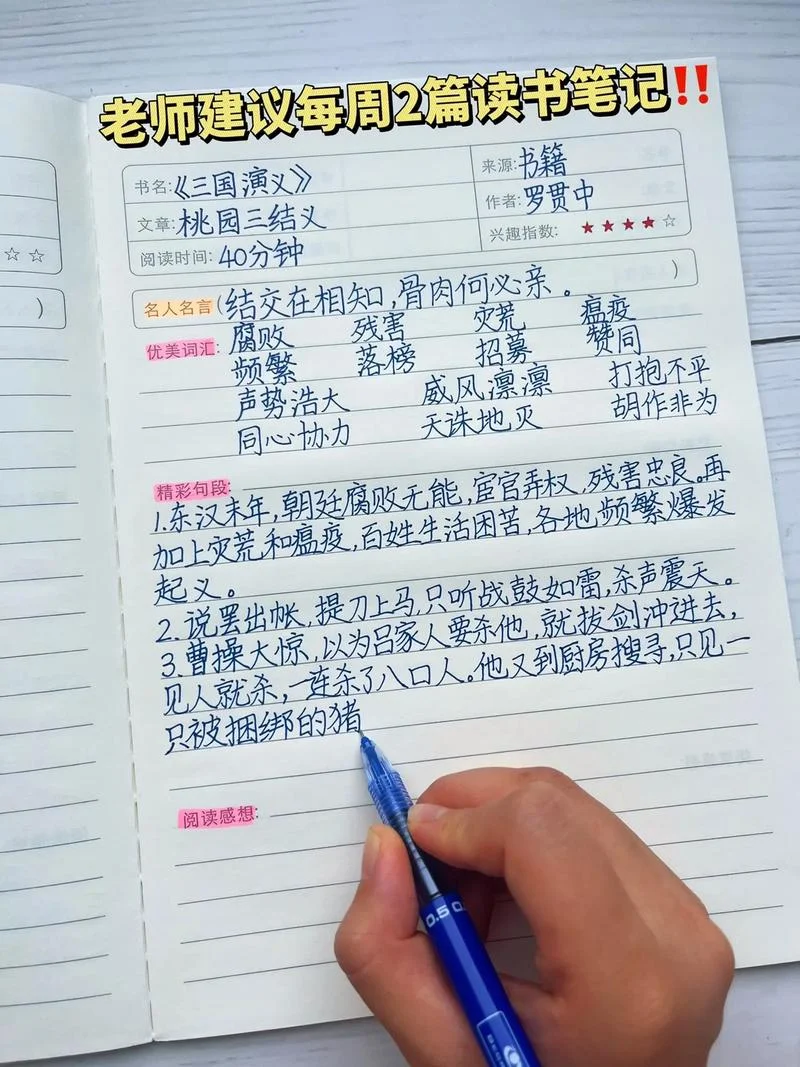 老师建议每周2篇读书笔记‼
书名:《三国演义》
来源:书籍
文章:桃园三结义
作者:罗贯中
阅读时间:40分钟
兴趣指数:★★★★☆
☆☆
名人名言(结交在相知,骨肉何必亲。)
)
优美词汇:腐败 残害 灾荒 瘟疫
频繁 落榜 招募 赞同
声势浩大 威风凛凛 打抱不平
同心协力 天诛地灭 胡作非为
精彩句段:
1.东汉末年,朝廷腐败无能,宦官弄权,残害忠良。再
加上灾荒和瘟疫,百姓生活困苦,各地频繁爆发
起义。
2.说罢出帐,提刀上马,只听战鼓如雷,杀声震天。
3.曹操大惊,以为吕家人要杀他,就拔剑冲进去,
见人就杀,一连杀了八口人。他又到厨房搜寻,只见一
只被捆绑的猪
阅读感想:
0.5